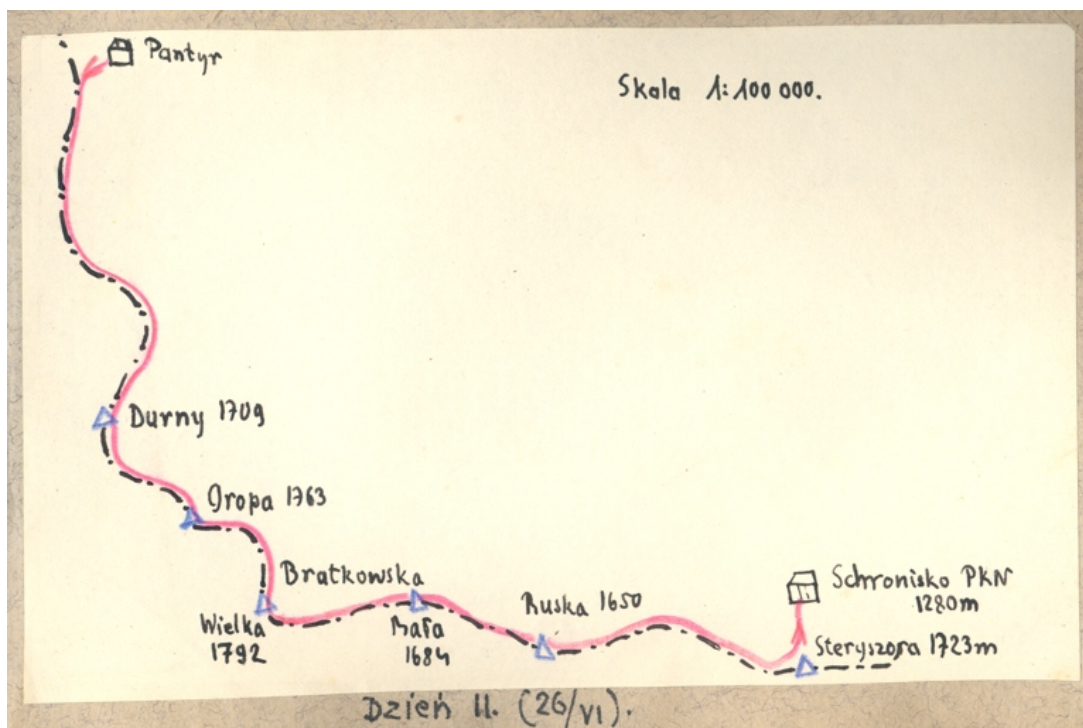 Pantyr
Skala 1:100 000.
Durny 1709
Gropa 1763
Bratkowska
Wielka
1792
Mała
1684
Ruska 1650
Schronisko PKN
1280m
Steryszora 1723m
Dzień II. (26/VI).